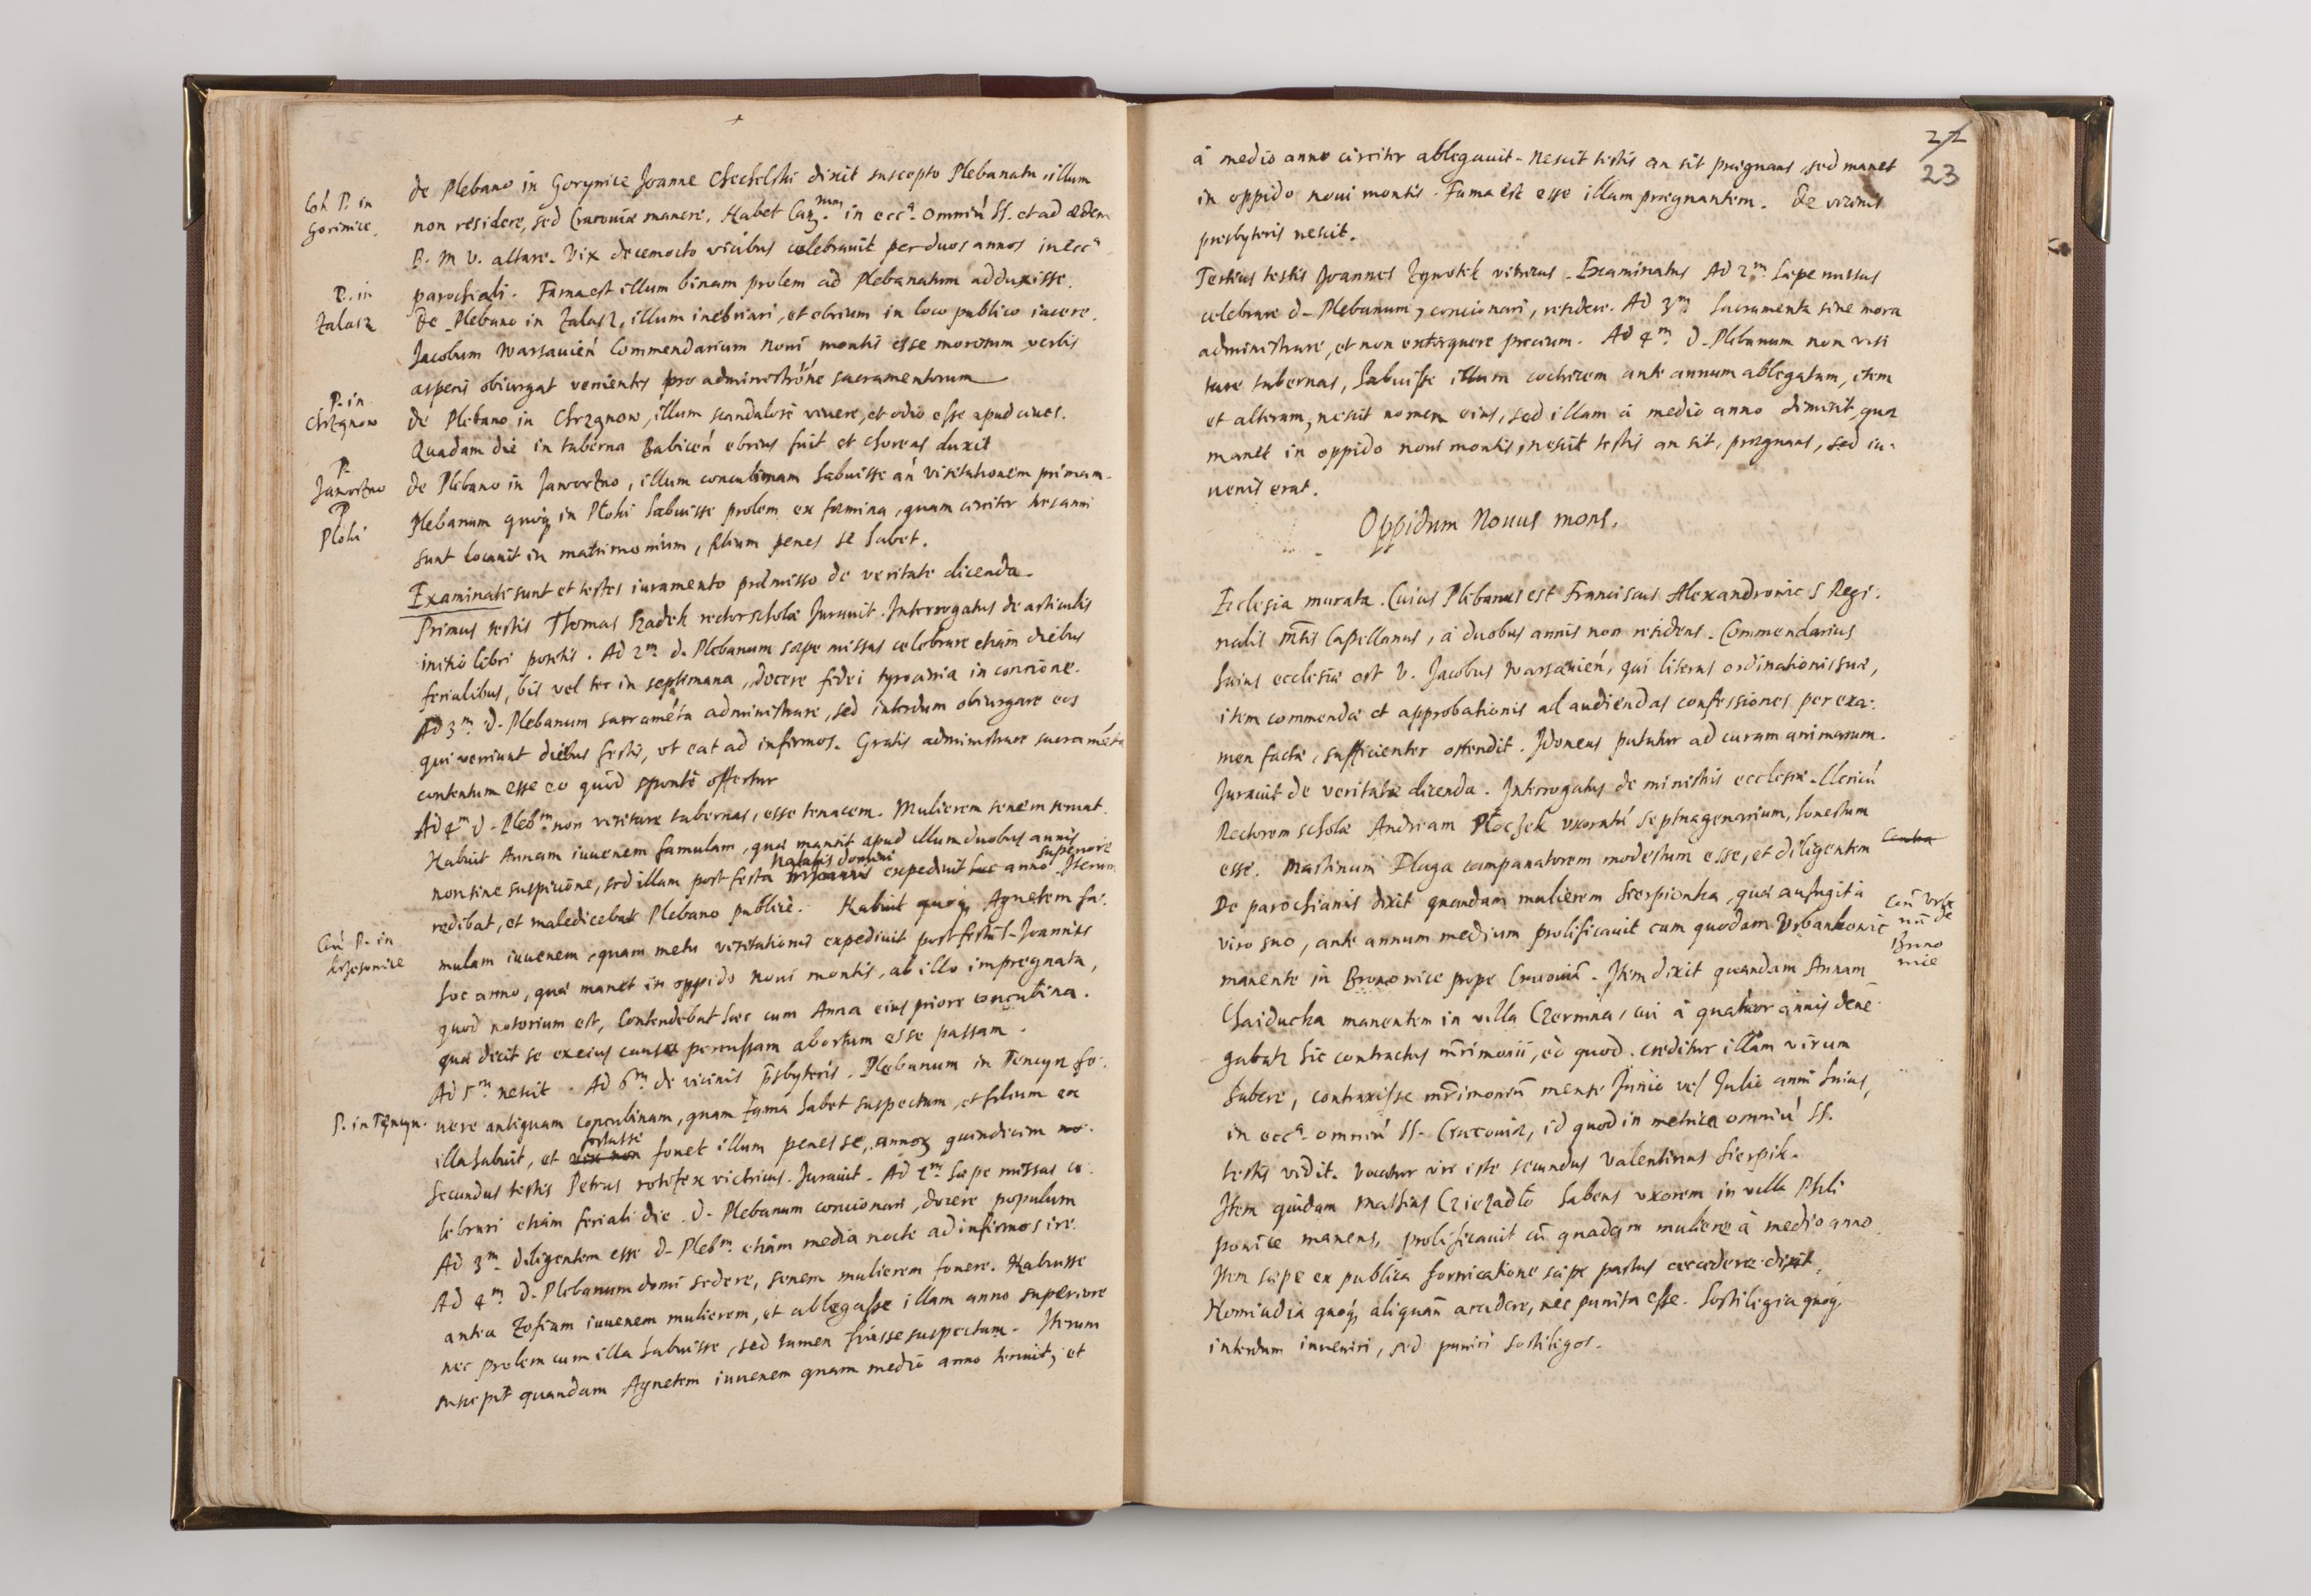 Coń P. in
Gorinice.
de Plebano in Gorynice Joanne Chechelski dixit suscepto Plebanatu illum
non residere, sed Cracouiæ manere. Habet Can.num in ecca. omniú SS. et ad ædem
B. M. V. altare. Vix decemocto vicibus celebrauit per duos annos in ecca
parochiali. Fama est illum binam prolem ad Plebanatum adduxisse.
P. in
Zalasz
De Plebano in Zalasz, illum inebriari, et ebrium in loco publico iacere.
Jacobum Warsauień Commendarium Noui montis esse morosum verbis
asperis obiurgat venientes pro administróne sacramentorum
P. in
Chrzanow
de Plebano in Chrzanow, illum scandalosè viuere, et odio esse apud ciues.
Quadam die in taberna Babiceń ebrius fuit et choreas duxit
P.
Jaworzno
de Plebano in Jaworzno, illum concubinam habuisse an̄ visitationem primam.
P
Ploki
Plebanum quoq̨ in Płoki habuisse prolem ex fæmina, quam circiter tres anni
sunt locauit in matrimonium, filium penes se habet.
Examinati sunt et testes iuramento præmisso de veritate dicenda.
Primus testis Thomas Szadek rector scholæ Jurauit. Interrogatus de articulis
initio libri positis. Ad 2m. d. Plebanum sæpe missas celebrare etiam diebus
ferialibus, bis vel ter in septimana, docere fidei tyrocinia in concione.
Ad 3m. d. Plebanum sacraméta administrare, sed interdum obiurgare eos
qui veniunt diebus festis, vt eat ad infirmos. Gratis administrare sacraméta
contentum esse eo quod spontè offertur
Ad 4m d. Plebm. non visitare tabernas, esse tenacem. Mulierem senem seruat.
Habuit Annam iuuenem famulam, quæ mansit apud illum duobus annis
Natalis domini superiore
non sine suspicione, sed illam post festa expediuit hoc anno. Iterum
redibat, et maledicebat Plebano publicè. Habuit quoq̨ Agnetem fa-
Coń P. in
mulam iuuenem, quam metu visitationis expediuit post festū S. Joannis
hoc anno, quæ manet in oppido Noui montis, ab illo impregnata,
quod notorium est, Contendebat hæc cum Anna eius priore concubina.
quæ dicit se ex eius causa percussam abortum esse passam.
Ad 5m nescit. Ad 6m. de vicinis p̄sbyteris. Plebanum in Tencyn fo-
P. in Tęncyn.
uere antiquam concubinam, quam fama habet suspectam, et filium ex
fortasse
illa habuit, et vix non fouet illum penes se, annoʒ quindicim no.
Secundus testis Petrus rotifex victricus. Jurauit. Ad 2m. sæpe missas ce-
lebrari etiam feriali die. d. Plebanum concionari, docere populum
Ad 3m. diligentem esse d. Plebm. etiam media nocte ad infirmos ire.
Ad 4m. d. Plebanum domi sedere, senem mulierem fouere. Habuisse
antea Zofiam iuuenem mulierem, et ablegasse illam anno superiore
nec prolem cum illa habuisse, sed tamen fuisse suspectam. Iterum
suscepit quandam Agnetem iuuenem quam medio anno tenuit, et
22
23
à medio anno circiter ablegauit. Nescit testis an sit prægnans, sed manet
in oppido noui montis. Fama est esse illam prægnantem. De vicinis
presbyteris nescit.
Tertius testis Joannes Zywotek vitricus. Examinatus Ad 2m. sæpe missas
celebrare d. Plebanum, concionari, residere. Ad 3m. Sacramenta sine mora
administrare, et non extorquere precium. Ad 4m. d. Plebanum non visi
tare tabernas, habuisse illum cochicem ante annum ablegatam, item
et alteram, nescit nomen eius, sed illam à medio anno dimisit, quæ
manet in oppido noui montis, nescit testis an sit prægnans, sed iu-
uenis erat.
Oppidum Nouus mons.
Ecclesia murata. Cuius Plebanus est Franciscus Alexandrowic S. Regi-
nalis M̄tis Capellanus, à duobus annis non residens. Commendarius
huius ecclesiæ est V. Jacobus Warsauień, qui literas ordinationis suæ,
item commendæ et approbationis ad audiendas confessiones per exa-
men factæ, sufficienter ostendit. Idoneus putatur ad curam animarum.
Jurauit de veritate dicenda. Interrogatus de ministris ecclesiæ. Clericū
Rectorem scholæ Andream Płoczek vxoratū septuagenarium, honestum
esse. Martinum Długa campanatorem modestum esse, et diligentem
Contra
De parochianis dixit quandam mulierem Sierpionka, quæ aufugit à
Coń Vrba
nū de
Brono
wic
viro suo, ante annum medium prolificauit cum quodam Vrbankowic
manente in Bronowice prope Cracouiā. Item dixit quandam Annam
Chaiducka manentem in villa Czermna, cui à quatuor annis dene-
gabatur hic contractus m̄rimonii, eò quod creditur illam virum
habere, contraxisse m̄rimoniū mense Junio vel Julio anni huius,
in ecca. omniú SS. Cracouiæ, id quod in metrica omniú SS.
testis vidit. Vocatur vir iste secundus Valentinus Sierpik.
Item quidam Mathias Cziezadło habens vxorem in villa Phili
powice manens, prolificauit cū quadam muliere à medio anno
Item sæpe ex publica fornicatione sæpe partus accidere dixit,
Homicidia quoq̨ aliquan̄ accidere, nec punita esse. Sortilegia quoq̨
interdum inueniri, sed puniri sortilegos.